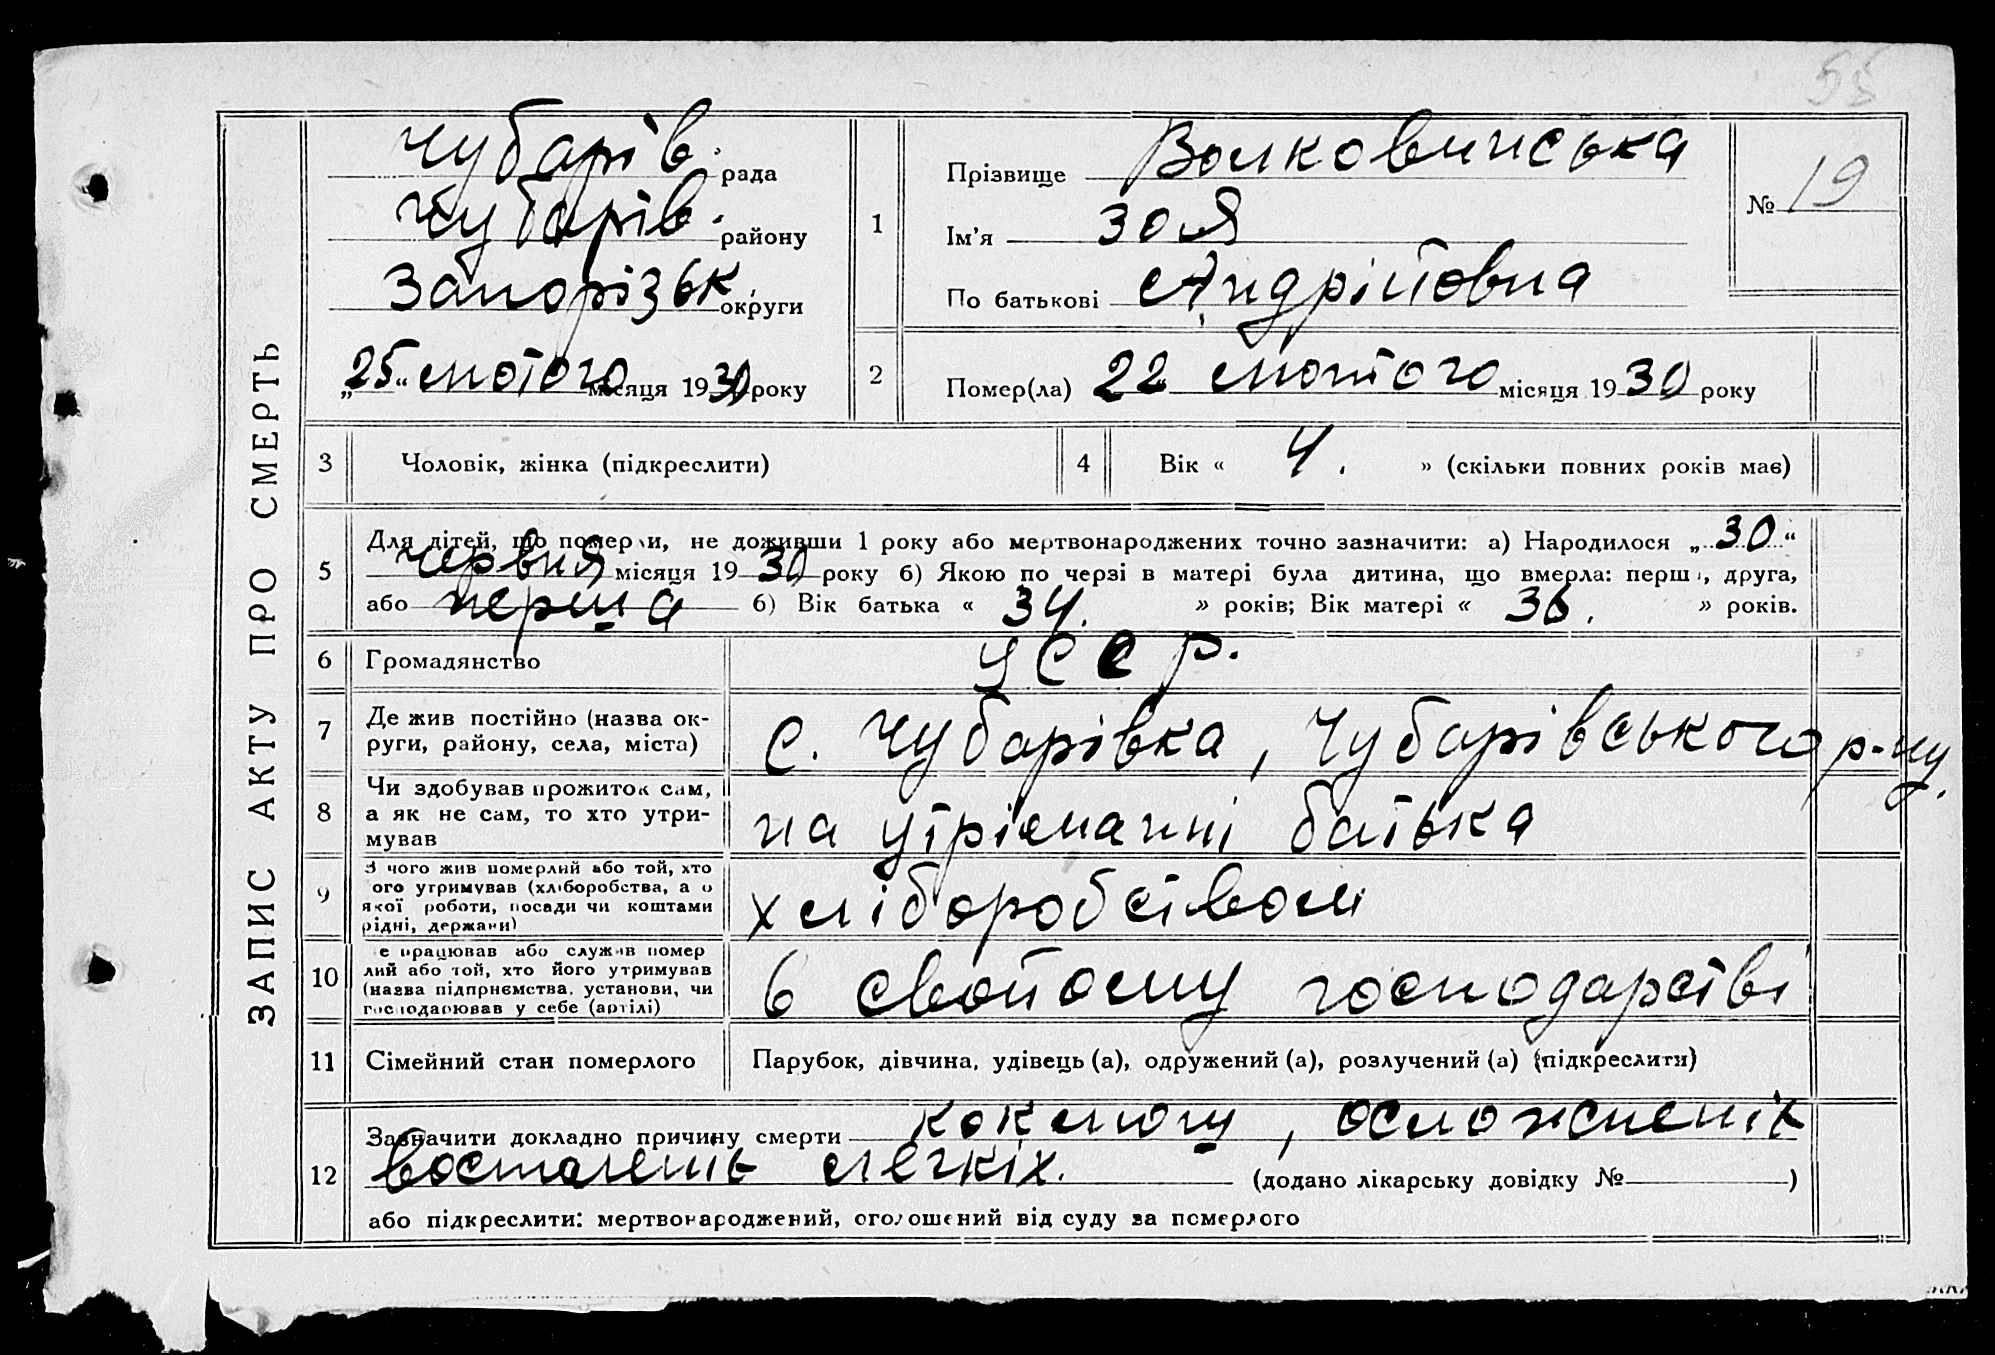 55
ЗАПИС АКТУ ПРО СМЕРТЬ
Чубарів. рада
Чубарів. району
Запорізьк. округи
„25“ лютого місяця 1930 року
1 Прізвище Волковинська
Ім'я Зоя
По батькові Андрійовна
№ 19
2 Помер(ла) 22 лютого місяця 1930 року
3 Чоловік, жінка (підкреслити)
4 Вік « 4. » (скільки повних років має)
5 Для дітей, що померли, не доживши 1 року або мертвонароджених точно зазначити: а) Народилося „30“
червня місяця 1930 року б) Якою по черзі в матері була дитина, що вмерла: перша, друга,
або перша б) Вік батька « 34. » років; Вік матері « 36. » років.
6 Громадянство УССР.
7 Де жив постійно (назва ок-
руги, району, села, міста)
с. Чубарівка, Чубарівського р-ну.
8 Чи здобував прожиток сам,
а як не сам, то хто утри-
мував
на утріманні батька
9 З чого жив померлий або той, хто
ого утримував (хліборобства, а о
якої роботи, посади чи коштами
рідні, держави)
хліборобством
10 е працював або служив помер
лий або той, хто його утримував
(назва підприємства, установи, чи
господарював у себе (артілі)
в свойому господарстві
11 Сімейний стан померлого
Парубок, дівчина, удівець (а), одружений (а), розлучений (а) (підкреслити)
12 Зазначити докладно причину смерти коклюш, осложненіє
воспаленіє легкіх. (додано лікарську довідку № )
або підкреслити: мертвонароджений, оголошений від суду за померлого